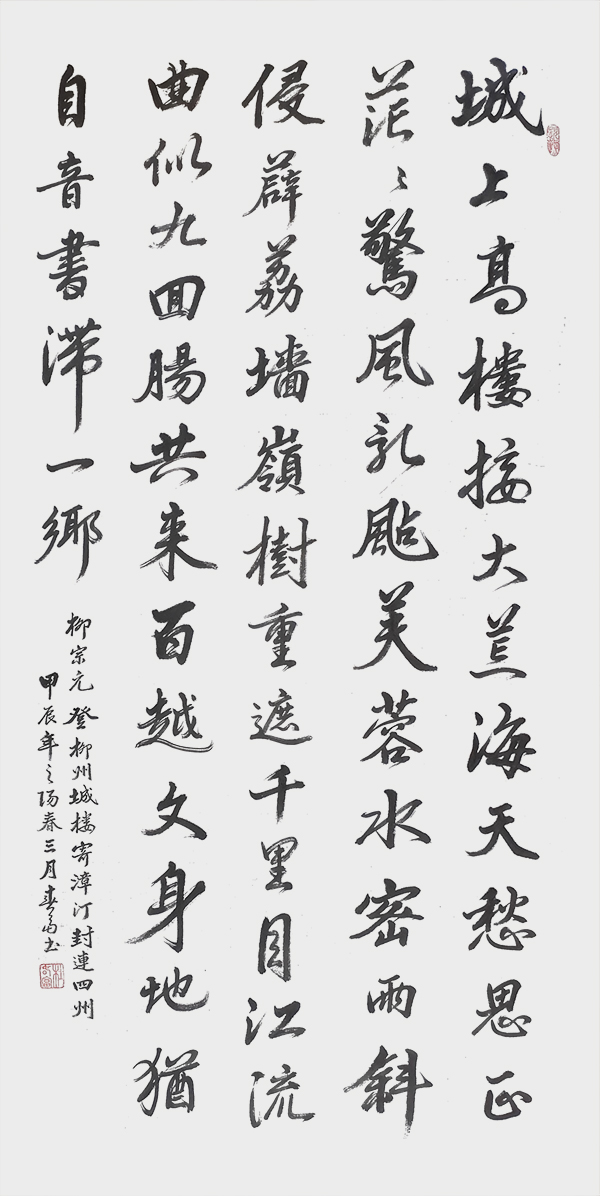 城上高樓接大荒海天愁思正
茫〻驚風乱颭芙蓉水密雨斜
侵薜荔墙嶺樹重遮千里目江流
曲似九回腸共来百越文身地猶
自音書滯一鄉
柳宗元登柳州城楼寄漳汀封連四州
甲辰年之陽春三月